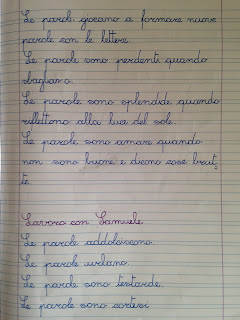 Le parole giocano a formare nuove
parole con le lettere.
Le parole sono perdenti quando
sbagliano.
Le parole sono splendide quando
riflettono alla luce del sole.
Le parole sono amare quando
non sono buone e dicono cose brut-
te.
Lavoro con Samuele
Le parole addolciscono.
Le parole urlano.
Le parole sono testarde.
Le parole sono cortesi